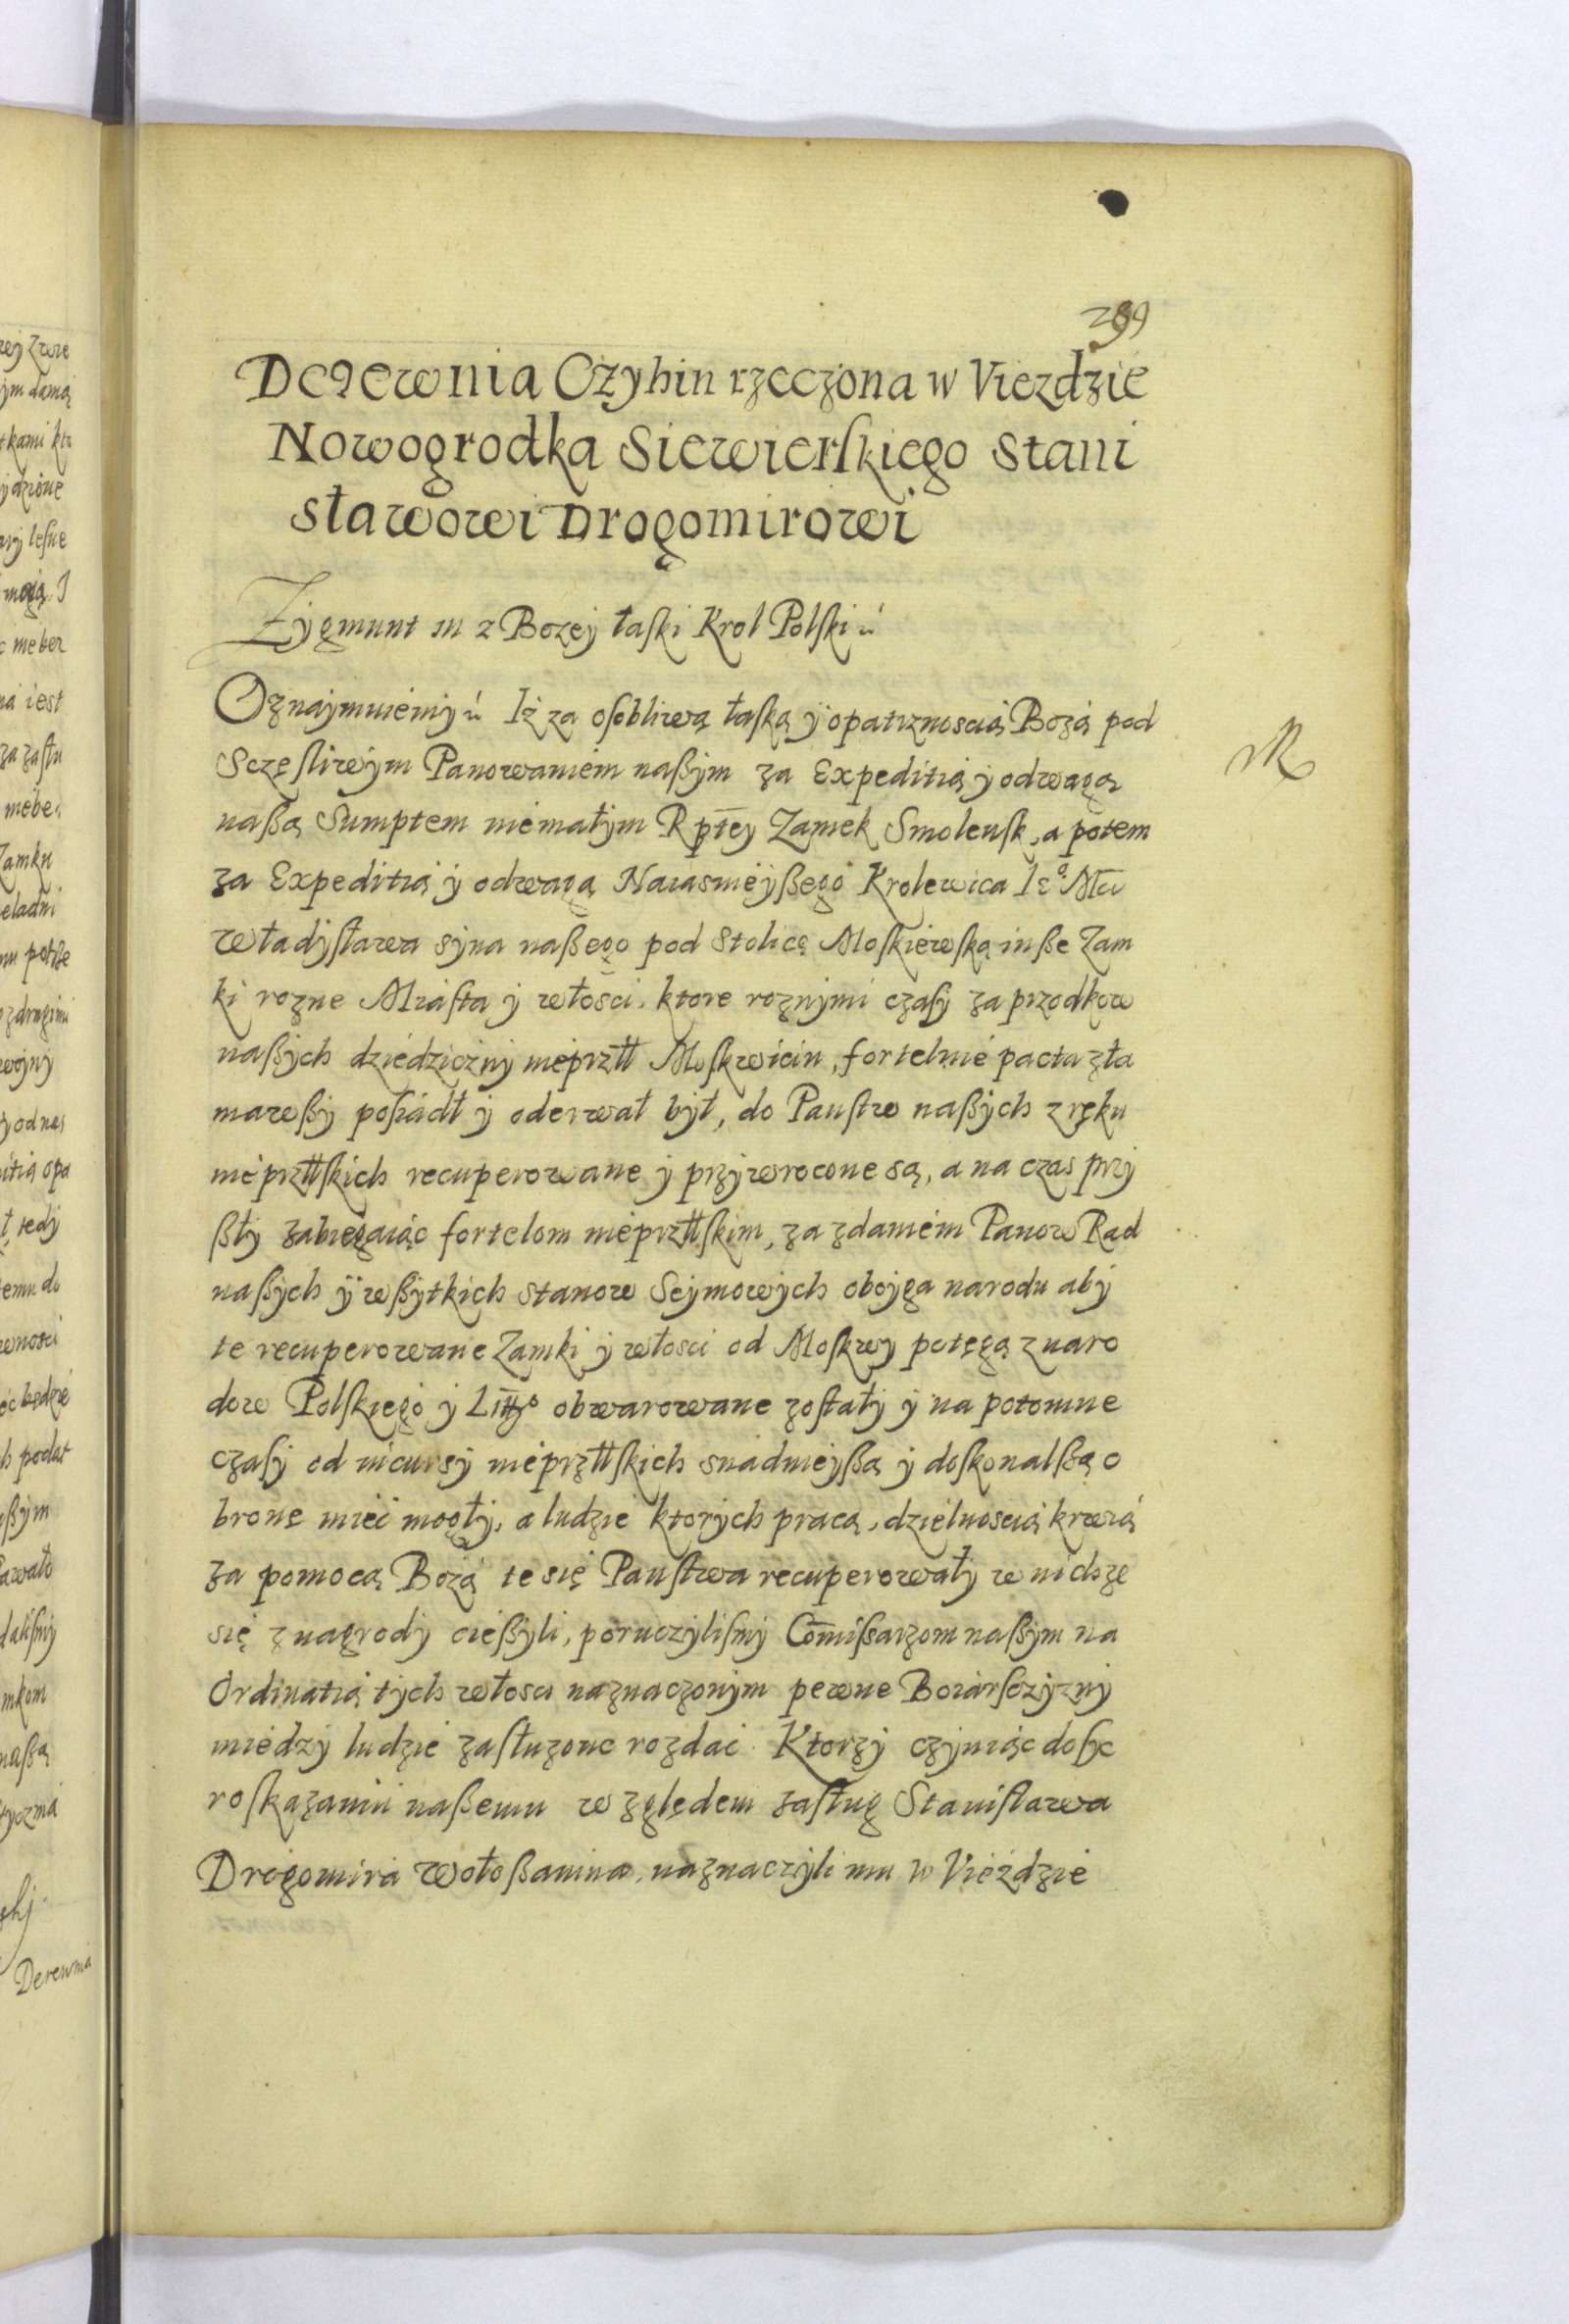 299
Derewnia Ożyhin rzeczona w Viezdzie
Nowogrodka Siewierskiego Stani
sławowi Drogomirowi
Zygmunt III z Bozey łaski Krol Polski
Oznaymuiemy Iż za osobliwą łaską y opatrznoscią Bozą pod
Sczęsliwym Panowaniem naßym za Expeditią y odwagą
naßą Sumptem niemałym Rptey Zamek Smolensk, a potem
za Expeditią y odwagą Naiasnieyßego Krolewica Ieº Mci
Władysława syna naßego pod Stolicę Moskiewską inße Zam
ki rozne Miasta y włości, ktore roznymi czasy za przodkow
naßych dziedziczny nieprztl Moskwicin, fortelnie pacta zła
mawßy posiadł y oderwał był, do Panstw naßych z ręku
nieprztlskich recuperowane y przywrocone są, a na czas przy
ßły zabiegaiąc fortelom nieprztlskim, za zdaniem Panow Rad
naßych y wßytkich stanow Seymowych oboyga narodu aby
te recuperowane Zamki y włosci od Moskwy potęgą z naro
dow Polskiego y Litto obwarowane zostały y na potomne
czasy od incursy nieprztlskich snadnieyßą y doskonalßą o
bronę mieć mogły, a ludzie ktorych pracą, dzielnoscią krwią
za pomocą Bozą te się Panstwa recuperowały w nichze
się z nagrody cießyli, poruczylismy Comißarzom naßym na
Ordinatią tych włosci naznaczonym pewne Boiarsczyzny
miedzy ludzie zasłuzone rozdać Ktorzy czyniąc dosyc
roskazaniu naßemu względem zasług Stanisława
Drogomira Wołoßanina, naznaczyli mu w Vieździe
M
Derewnia